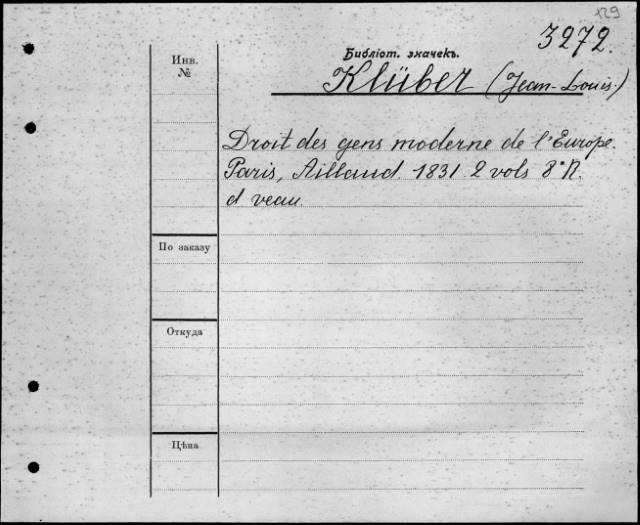 129
3272.
Инв.
№
Библіот. значекъ.
Klüber (Jean-Louis.)
Droit des gens moderne de l'Europe.
Paris, Aillaud. 1831. 2 vols 8° R.
d veau.
По заказу
Откуда
Цѣна